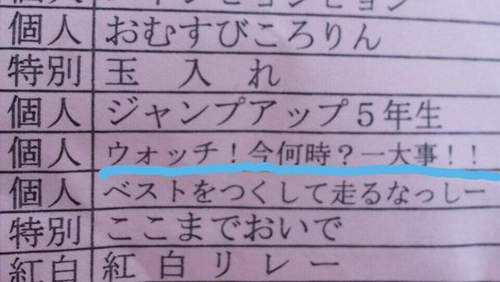 個人 おむすびころりん
特別 玉入れ
個人 ジャンプアップ５年生
個人 ウォッチ！今何時？一大事！！
個人 ベストをつくして走るなっしー
特別 ここまでおいで
紅白 紅白リレー